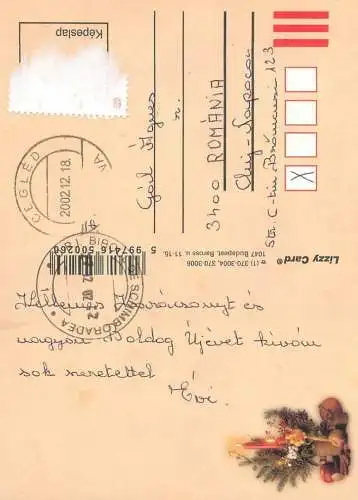 Képeslap
CEGLÉD
2002 12. 18.
VA
Kellemes Karácsonyt és
nagyon Boldog Újévet kíván
sok szeretettel
Évi.
Gál Ágnes
3400 ROMÁNIA
Cluj-Napoca
str. C-tin Brâncuși 123
X
5 997416 500260
Lizzy Card®
1047 Budapest, Baross u. 11-15.
☎ (1) 370-3004, 370-3008